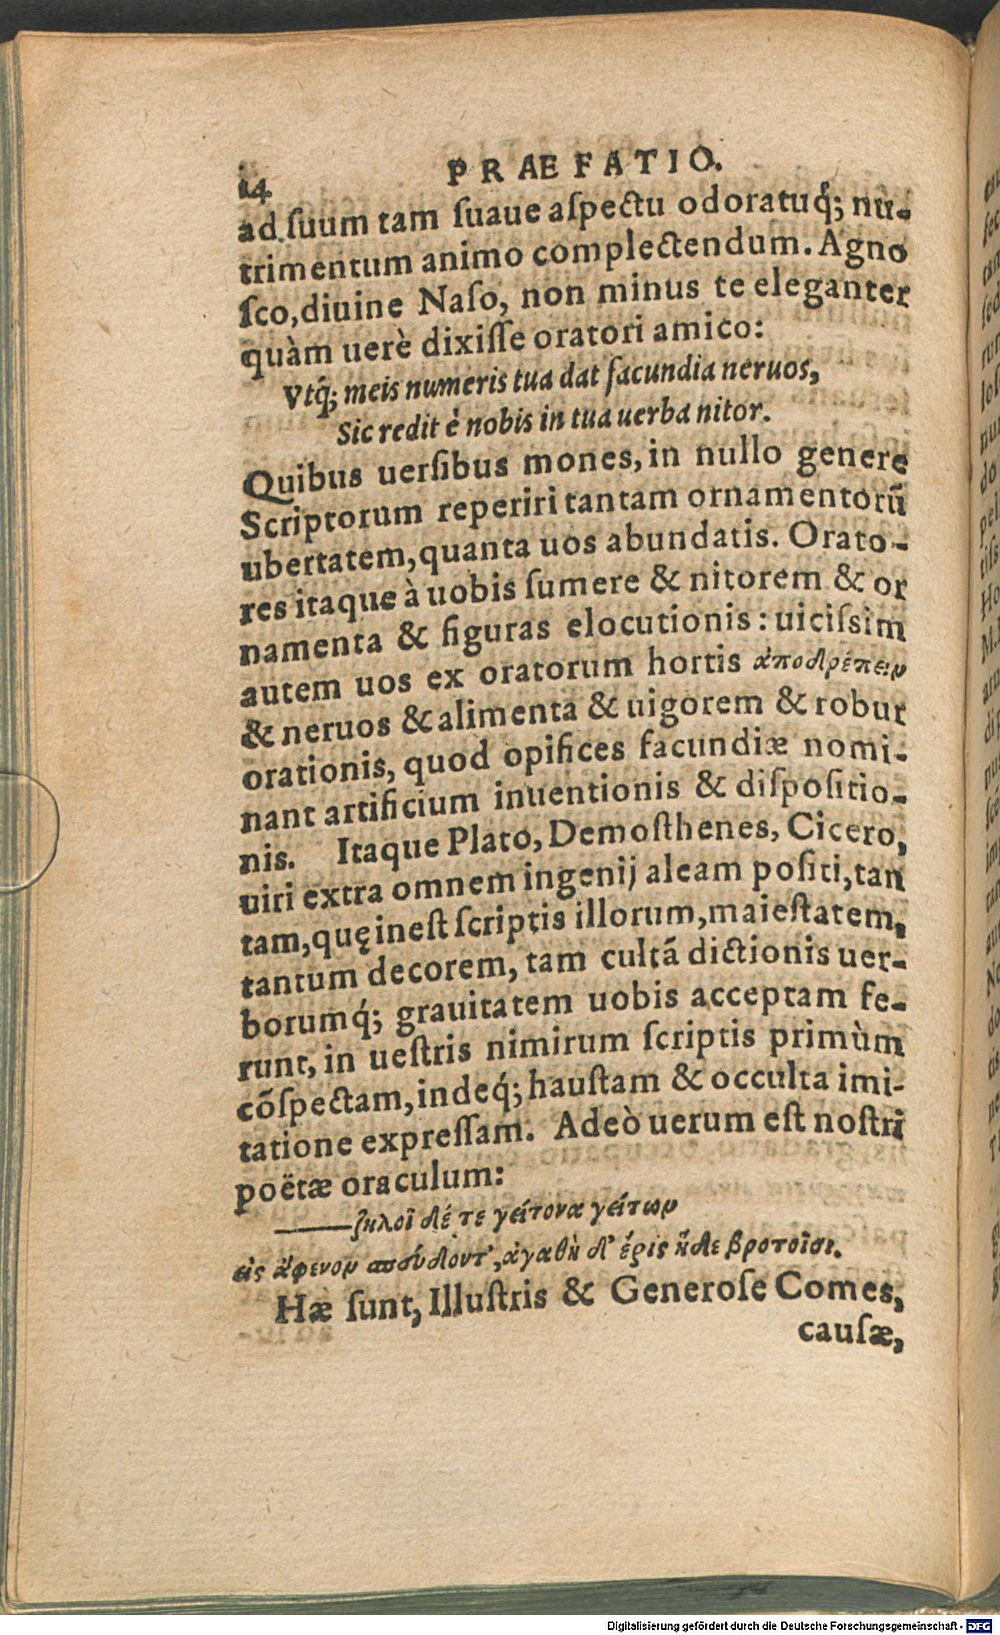 14 PRAEFATIO.
ad suum tam ſuaue aſpectu odoratuq́; nu-
trimentum animo complectendum. Agno
ſco, diuine Naſo, non minus te eleganter
quàm uerè dixiſſe oratori amico:
Vtq́; meis numeris tua dat facundia neruos,
Sic redit è nobis in tua uerba nitor.
Quibus uerſibus mones, in nullo genere
Scriptorum reperiri tantam ornamentorũ
ubertatem, quanta uos abundatis. Orato-
res itaque à uobis ſumere & nitorem & or
namenta & figuras elocutionis: uiciſsim
autem uos ex oratorum hortis ἀποδρέπειν
& neruos & alimenta & uigorem & robur
orationis, quod opifices facundiæ nomi-
nant artificium inuentionis & diſpoſitio-
nis. Itaque Plato, Demoſthenes, Cicero,
uiri extra omnem ingenij aleam poſiti, tan
tam, quę ineſt ſcriptis illorum, maieſtatem,
tantum decorem, tam cultã dictionis uer-
borumq́; grauitatem uobis acceptam fe-
runt, in ueſtris nimirum ſcriptis primùm
cõſpectam, indeq́; hauſtam & occulta imi-
tatione expreſſam. Adeò uerum eſt noſtri
poëtæ oraculum:
——ζηλοῖ δέ τε γείτονα γείτων
εἰς ἄφενον σπεύδοντ', ἀγαθὴ δ' ἔρις ἥδε βροτοῖσι.
Hæ ſunt, Illuſtris & Generoſe Comes,
cauſæ,
Digitalisierung gefördert durch die Deutsche Forschungsgemeinschaft - DFG